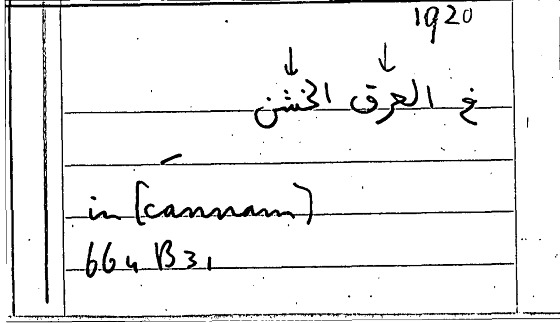 1920
خ العرق الخشن
in [cannam]
664 B31